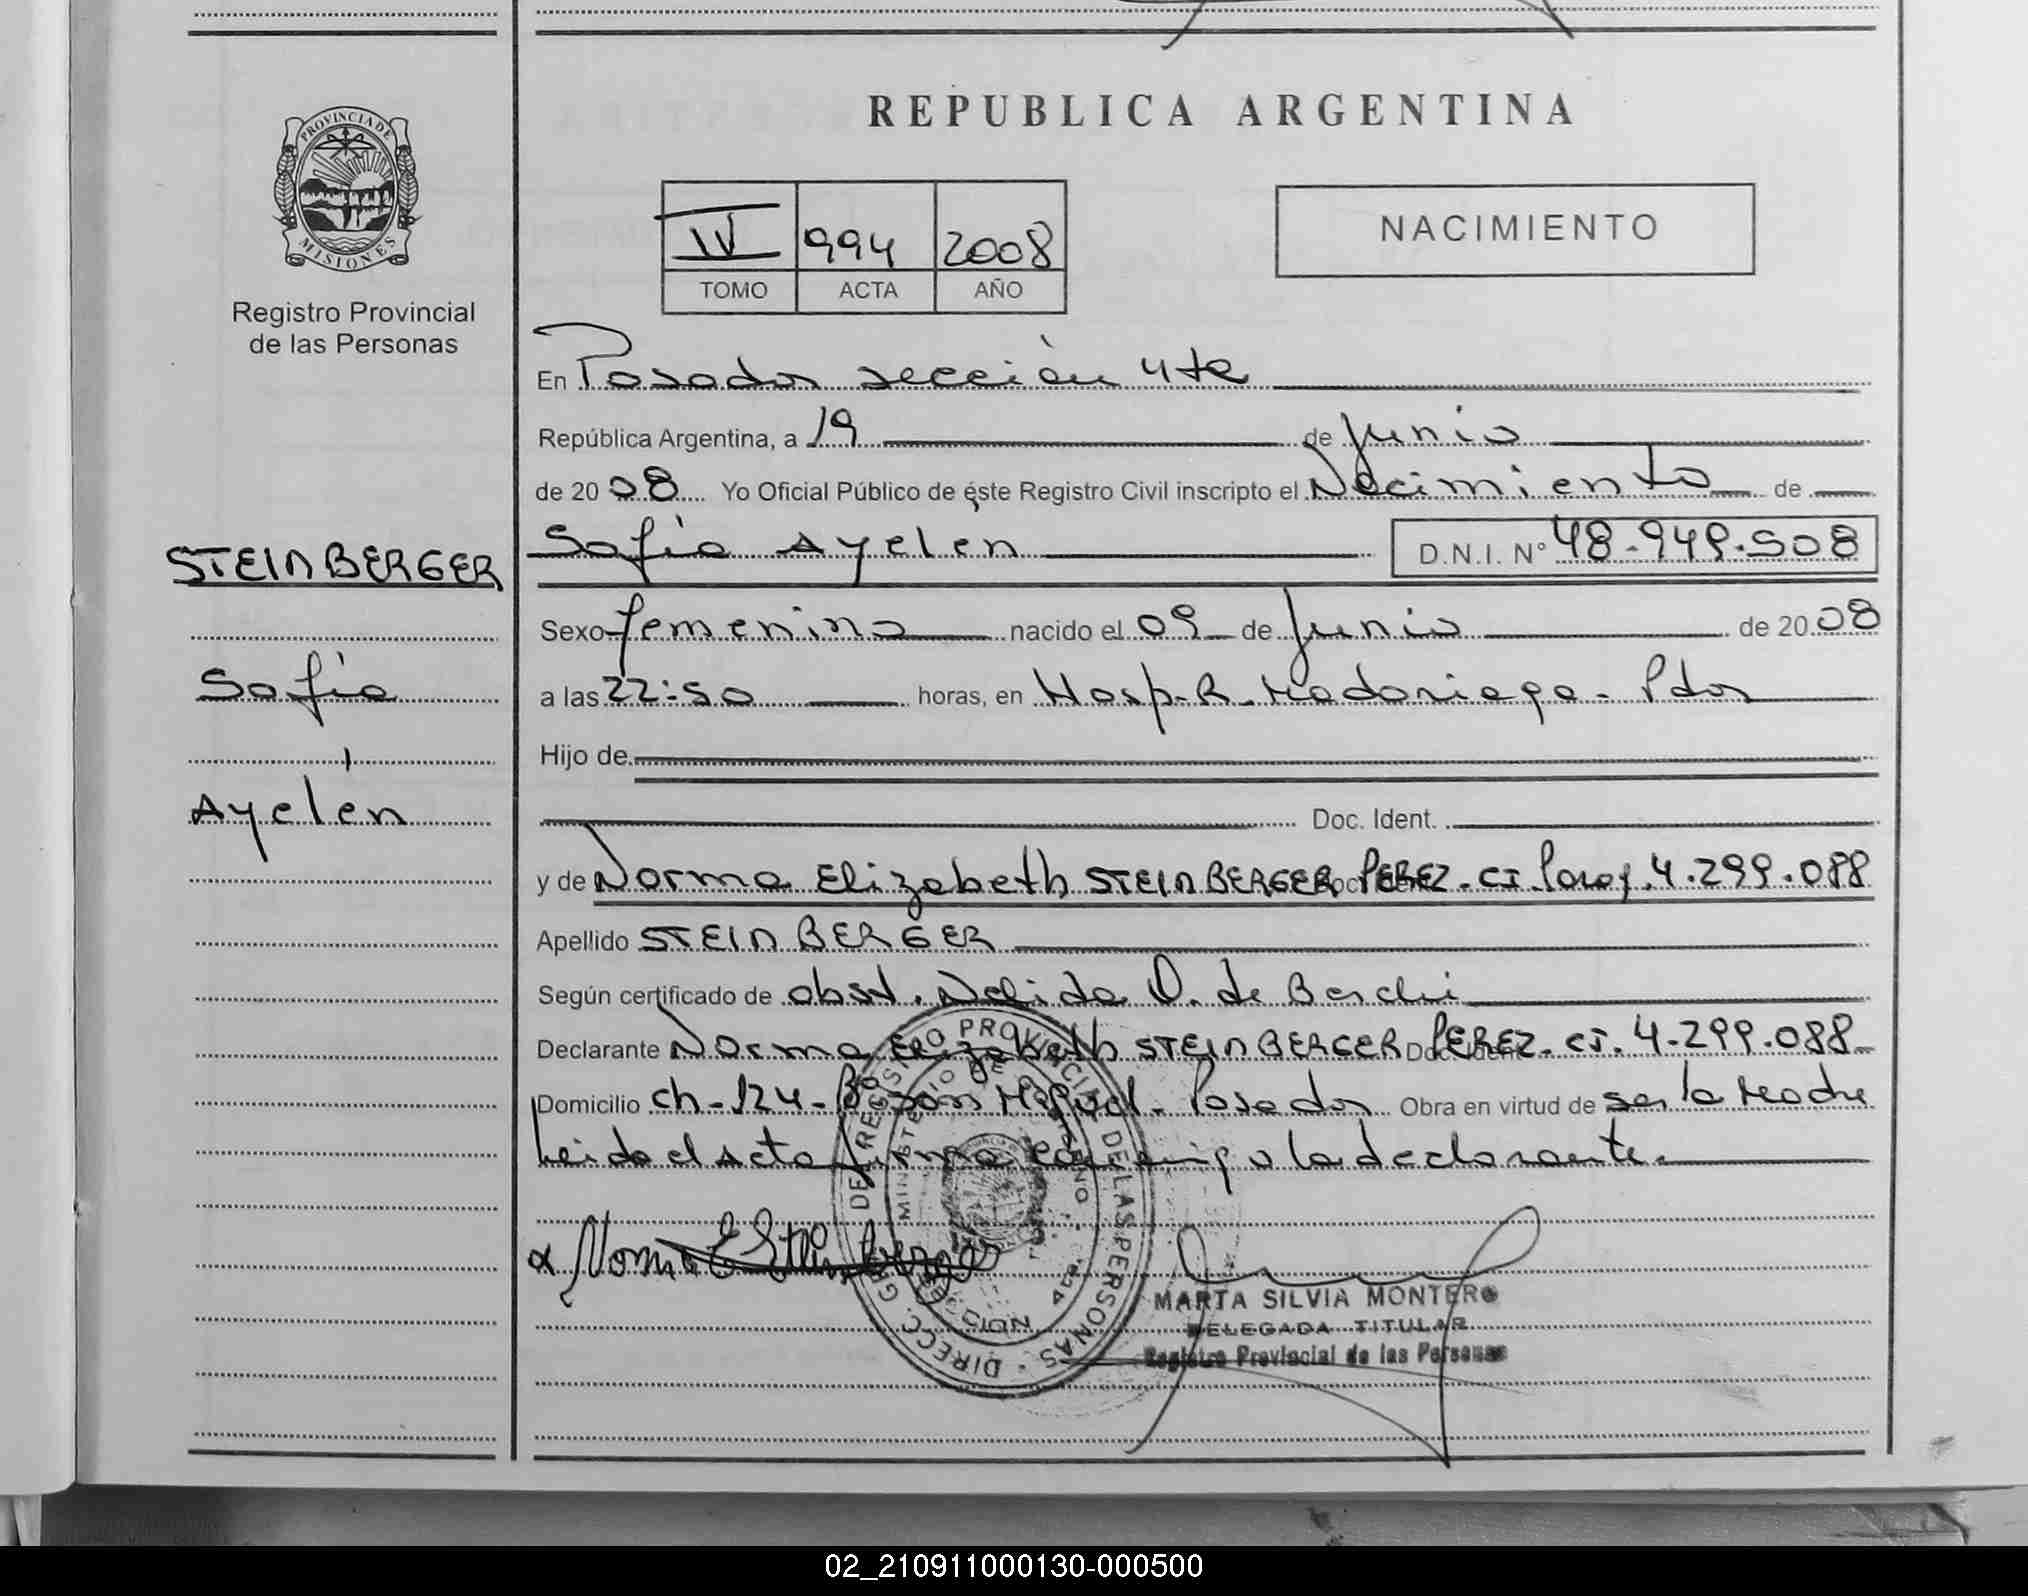 REPUBLICA ARGENTINA
PROVINCIA DE
MISIONES
Registro Provincial
de las Personas
IV 994 2008
TOMO ACTA AÑO
NACIMIENTO
STEINBERGER
Sofía
Ayelén
En Posadas sección 4ta
República Argentina, a 19 de Junio
de 2008 Yo Oficial Público de éste Registro Civil inscripto el Nacimiento de
Sofía Ayelen D.N.I. N° 48.949.508
Sexo femenino nacido el 09 de Junio de 2008
a las 22:50 horas, en Hosp. R. Madariaga - Pdas
Hijo de
Doc. Ident.
y de Norma Elizabeth STEINBERGER PEREZ. CI. Parag. 4.299.088
Apellido STEINBERGER
Según certificado de obst. Nelida O. de
Declarante Norma Elizabeth STEINBERGER PEREZ. CI. 4.299.088
Domicilio ch-124-Bº San Miguel - Posadas Obra en virtud de ser la Madre
Leida el Acta firma conmigo la declarante.
x Norma E Steinberger
DIRECC. GRAL. DEL REGISTRO PROVINCIAL DE LAS PERSONAS
MINISTERIO DE GOBIERNO
MARTA SILVIA MONTERO
DELEGADA TITULAR
Registro Provincial de las Personas
02_210911000130-000500